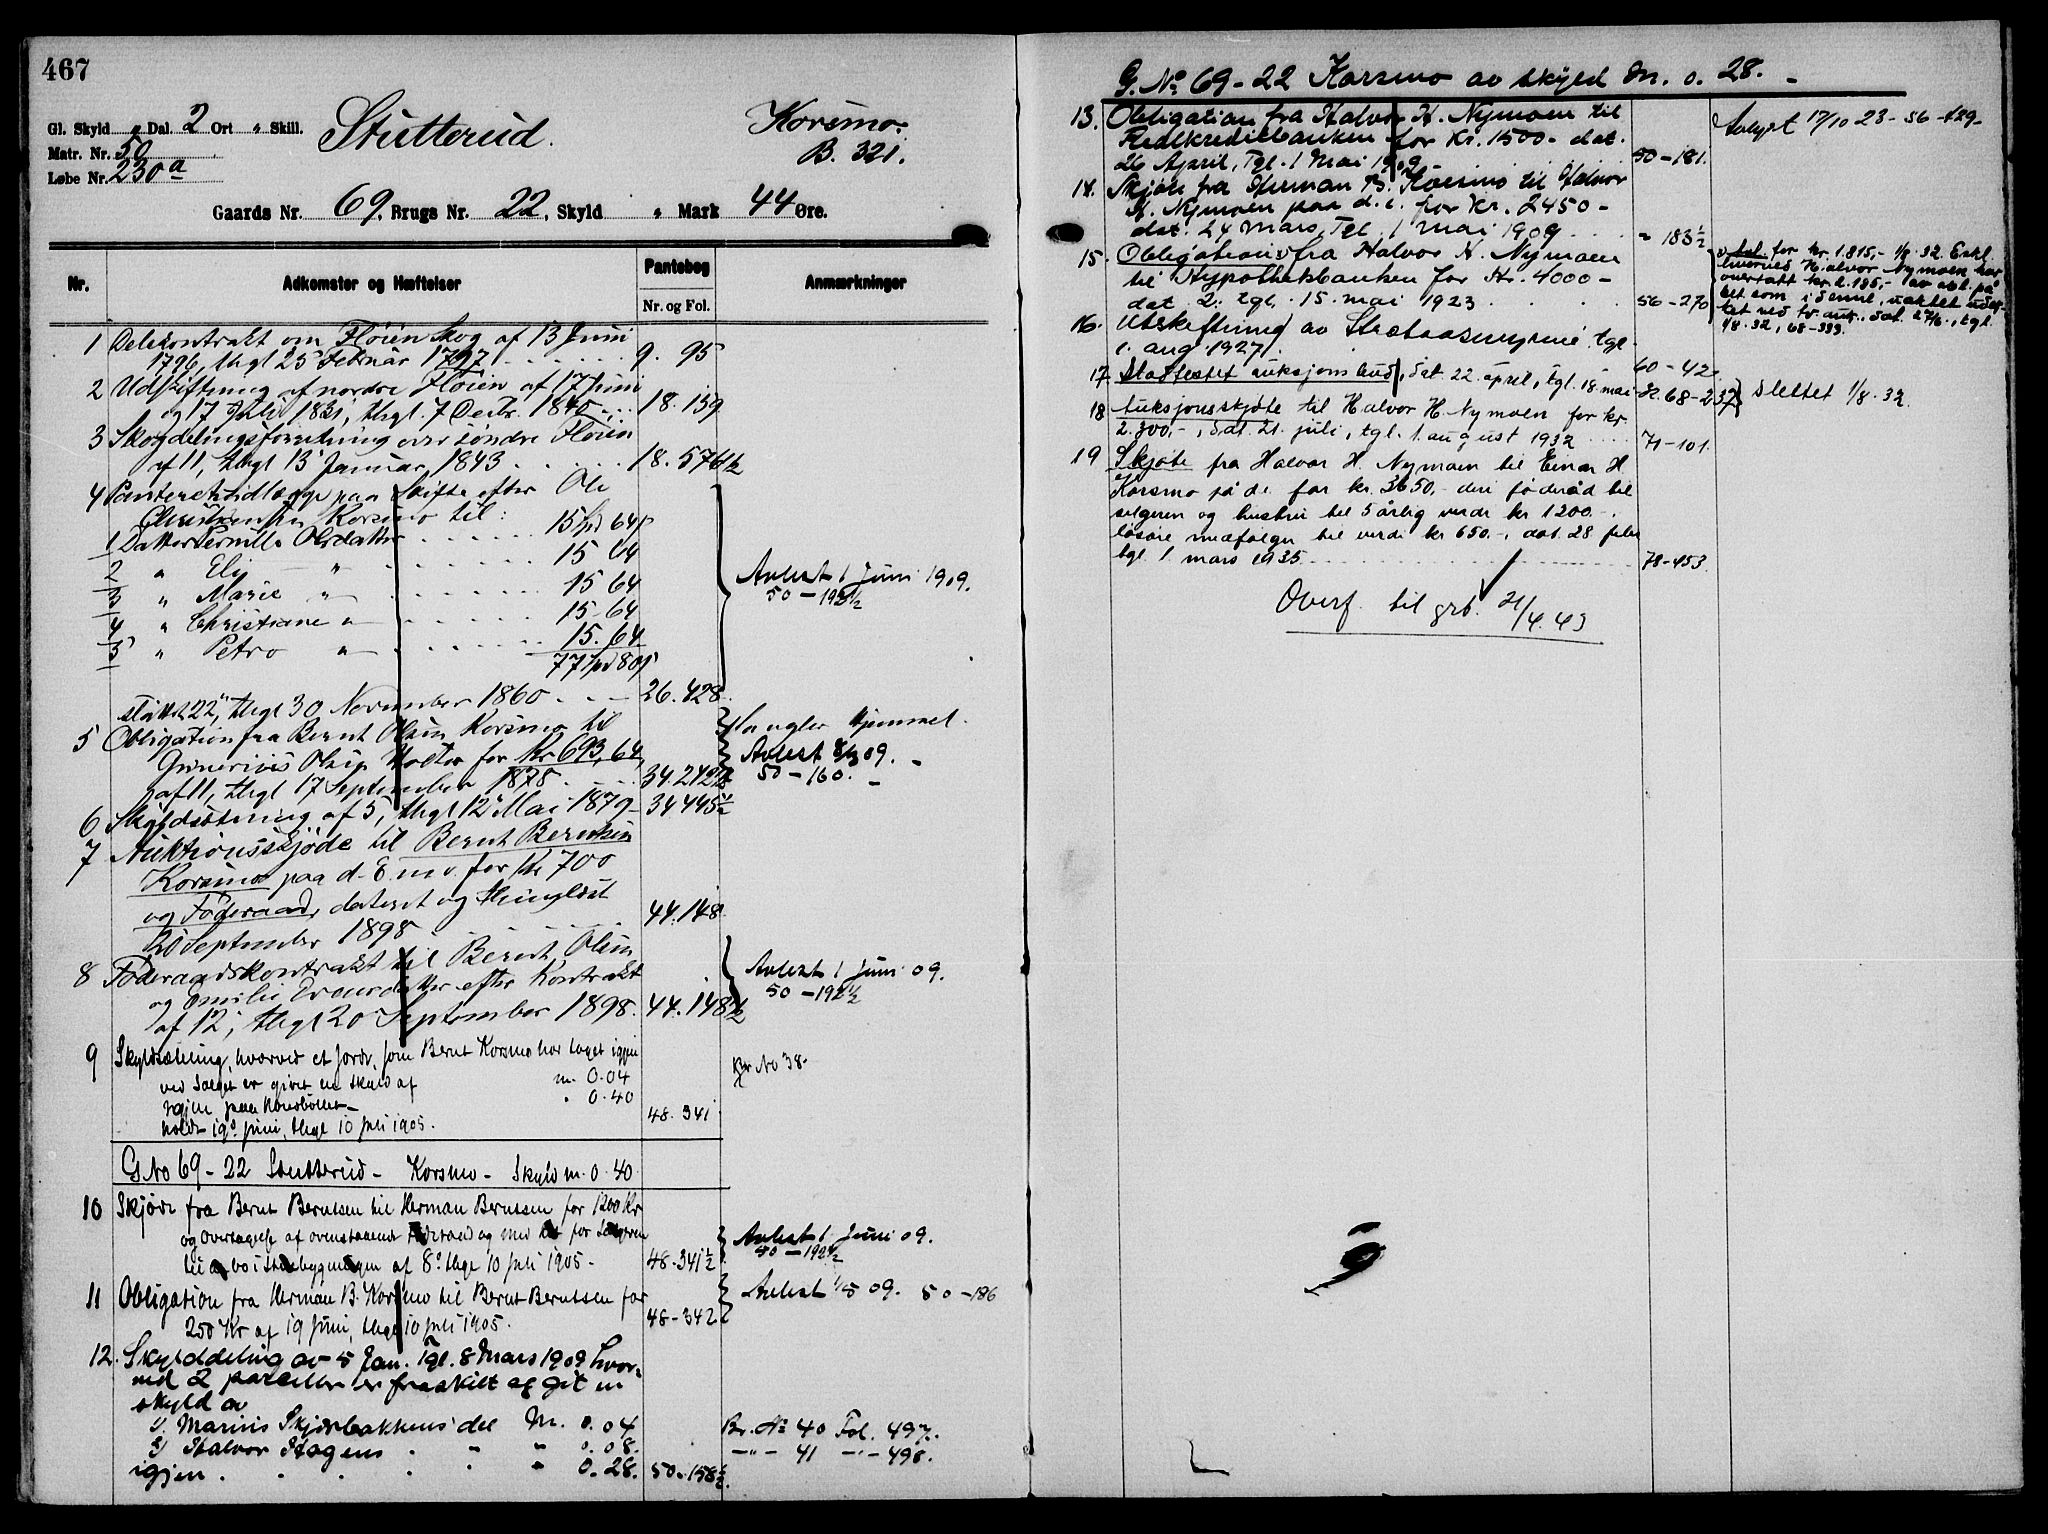 467
Gl. Skyld " Dal. 2 Ort " Skill.
Matr. Nr. 50
Løbe Nr. 230a
Stutterud.
Korsmo.
B. 321.
Gaards Nr. 69, Brugs Nr. 22, Skyld " Mark 44 Øre.
Nr. Adkomster og Hæftelser Pantebog Anmærkninger
Nr. og Fol.
1 Delekontrakt om Fløien Skog af 13 Juni
1796, thgl 25 Februar 1797 9. 95
2 Udskiftning af nordre Fløien af 17 Juni
og 17 Juli 1831, thgl. 7 Decbr. 1840 18. 159
3 Skogdelingsforretning over søndre Fløien
af 11, thgl 13 Januar, 1843 18. 576½
4 Panteretudlægge paa Skifte efter Ole
Christensen Korsmo til:
1 Datter Pernille Olsdatter 15 Spd 64 s
2 " Eli " 15 64
3 " Marie " 15 64
4 " Christiane " 15 64
5 " Petro " 15. 64
77 Spd 80 s
sluttet 22, thgl 30 November 1860 26. 428
Avlest 1 Juni 1909.
50 - 192½
5 Obligation fra Bernt Olsen Korsmo til
Gunerius Olsen for Kr 693,64,
af 11, thgl 17 September 1878 34. 242½
Mangler Hjemmel.
Avlest 8/3 09.
50 - 160.
6 Skyldsætning af 5, thgl 12 Mai 1879 34 445½
7 Auktionsskjøde til Bernt Berntsen
Korsmo paa d. E. m v. for Kr 700
og Føderaad, dateret og thinglæst
20 September 1898 44. 148
8 Føderaadskontrakt til Bernt Olsen
og Emilie Evensdatter efter Kontrakt
af 12, thgl 20 September 1898. 44. 148½
Avlest 1 Juni 09.
50 - 192½
9 Skyldsætning, hvorved et Jorde, som Bernt Korsmo har taget igjen
ved Salget er givet en Skyld af m. 0.04
Igjen paa Hovedbøllet " 0.40
holdt 19de Juni, thgl 10 Juli 1905. 48. 341
Br No 38.
G No 69 - 22 Stutterud - Korsmo - Skyld m. 0.40
10 Skjøde fra Bernt Berntsen til Herman Berntsen for 1200 Kr
og overtagelse af ovenstaaende Føderaad og med Ret for Sælgeren
til at bo i Stuebygningen af 8. thgl 10 Juli 1905 - 48. 341½
Avlest 1 Juni 09.
50 - 192½
11 Obligation fra Herman B. Korsmo til Bernt Berntsen for
250 Kr af 19 Juni, thgl 10 Juli 1905. 48 - 342
Avlest 1/5 09. 50 - 186
12. Skylddeling av 5 Jan. Tgl. 8 Mars 1909 hvor-
ved 2 parceller er fraskilt og git en
skyld av
1/ Marius Skjærbakkens del M. 0.04 Br. No 40 Fol. 497.
2/ Halvor Hagens " " 0.08. - " - 41 - " - 498.
igjen " 0.28. 50 - 158½
G. No 69 - 22 Korsmo av skyld m. 0. 28. -
13. Obligation fra Halvor H. Nymoen til
Realkreditbanken for Kr. 1500 - dat.
26 April, Tgl. 1 Mai 1909 - 50 - 181.
Avlyst 17/10 23 - 56 - 429 -
14. Skjøte fra Herman B. Korsmo til Halvor
H. Nymoen paa d. e. for Kr. 2450 -
dat. 24 Mars, Tgl. 1 Mai 1909 " 183½
15. Obligation fra Halvor H. Nymoen
til Hypothekbanken for Kr. 4000 -
dat 2. tgl. 15. mai 1923 56 - 270
avl. for kr. 1.815,- 1/8. 32. Erkl.
hvorved Halvor Nymoen har
overtatt kr. 2.185,- av obl. på
det som i denne, uaktet uslet-
tet ved tv. auk., dat. 27/6., tgl.
1/8. 32, 68 - 333.
16. Utskiftning av Strætaasmyrene tgl.
1. aug. 1927 60 - 42
17. Stadfestet auksjonsbud, dat. 22. april, tgl. 18. mai 32. 68 - 237
slettet 1/8. 32.
18 Auksjonsskjøte til Halvor H. Nymoen for kr.
2.300,-, dat. 21. juli, tgl. 1. august 1932 71 - 101.
19 Skjøte fra Halvor H. Nymoen til Einar H.
Korsmo på d. e. for kr. 3650,- deri føderåd til
selgeren og hustru til 5 årlig verdi kr 1200.-.
løsøre medfølger til verdi kr 650.-. dat. 28. febr
tgl. 1. mars 1935 78 - 453
Overf. til grb. 21/4. 43